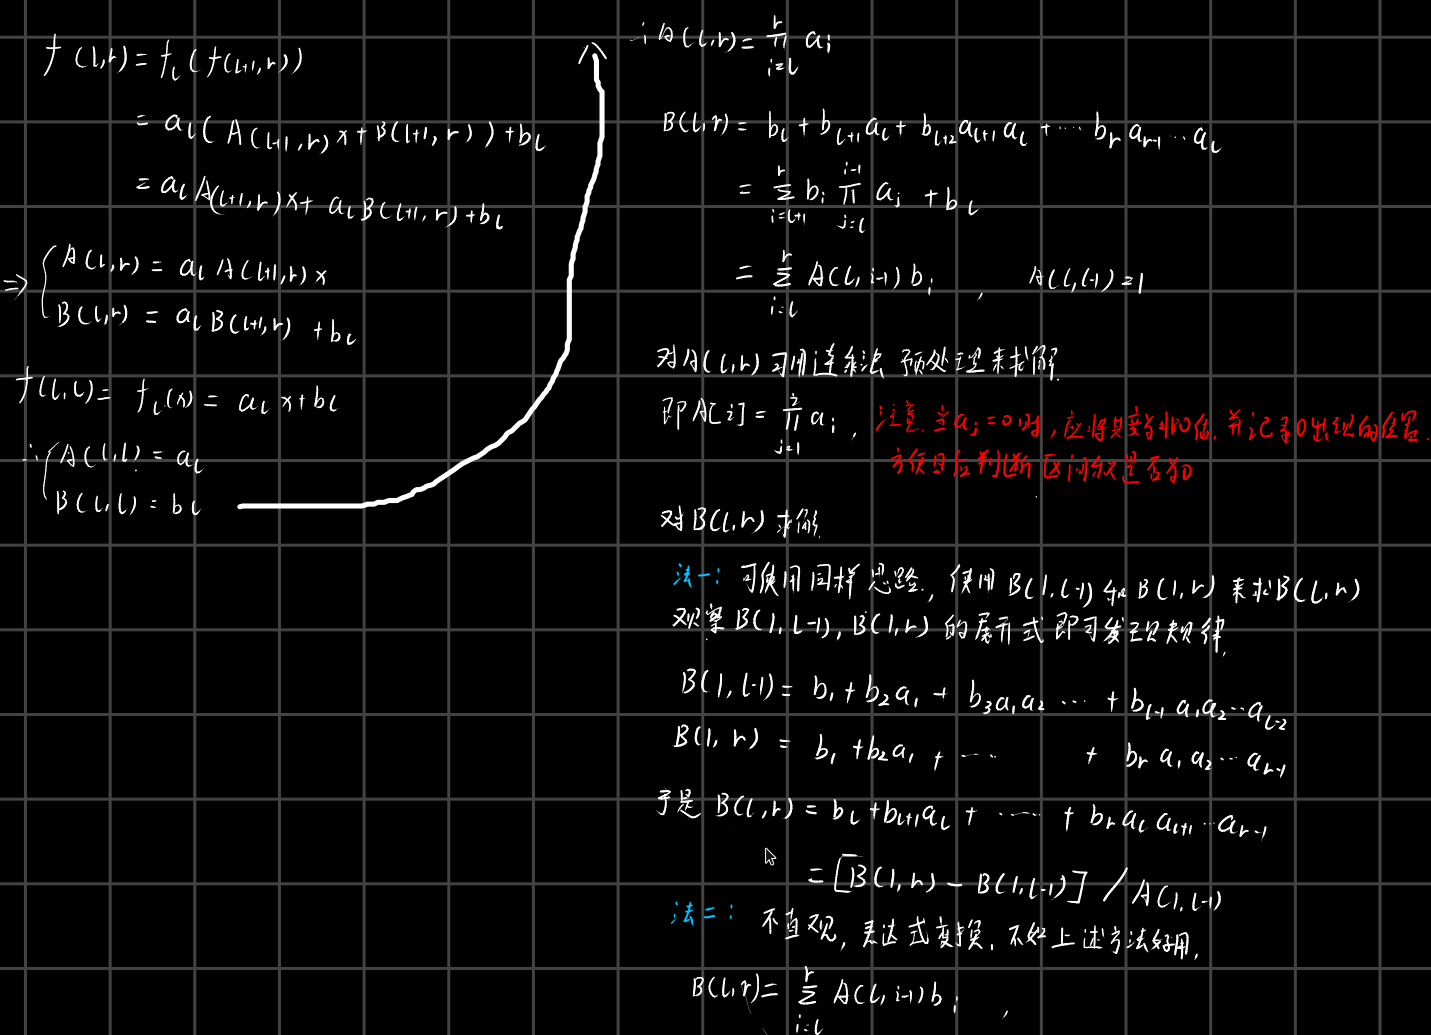 f(l,r) = f_l(f(l+1,r))
= a_l(A(l+1,r)x + B(l+1,r)) + b_l
= a_l A(l+1,r)x + a_l B(l+1,r) + b_l
⇒ { A(l,r) = a_l A(l+1,r)x
B(l,r) = a_l B(l+1,r) + b_l
f(l,l) = f_l(x) = a_l x + b_l
∴ { A(l,l) = a_l
B(l,l) = b_l
∴ A(l,r) = ∏_{i=l}^{r} a_i
B(l,r) = b_l + b_{l+1}a_l + b_{l+2}a_{l+1}a_l + ⋯ b_r a_{r-1}⋯a_l
= Σ_{i=l+1}^{r} b_i ∏_{j=l}^{i-1} a_j + b_l
= Σ_{i=l}^{r} A(l,i-1)b_i , A(l,l-1)=1
对A(l,r)可用连乘法 预处理来求解
即A[i] = ∏_{j=1}^{i} a_j , 注意当a_j=0时,应将其变为非0值,并记录0出现的位置.
方便日后判断区间积是否为0
对B(l,r)求解
法一: 可使用同样思路, 使用B(1,l-1)和B(1,r)来求B(l,r)
观察B(1,l-1),B(1,r)的展开式即可发现规律,
B(1,l-1) = b_1 + b_2a_1 + b_3a_1a_2 ⋯ + b_{l-1}a_1a_2⋯a_{l-2}
B(1,r) = b_1 + b_2a_1 + ⋯ + b_r a_1a_2⋯a_{r-1}
于是B(l,r) = b_l + b_{l+1}a_l + ⋯⋯ + b_r a_l a_{l+1}⋯a_{r-1}
= [B(1,r) - B(1,l-1)] / A(1,l-1)
法二: 不直观,表达式变换,不如上述方法好用,
B(l,r) = Σ_{i=l}^{r} A(l,i-1)b_i ,